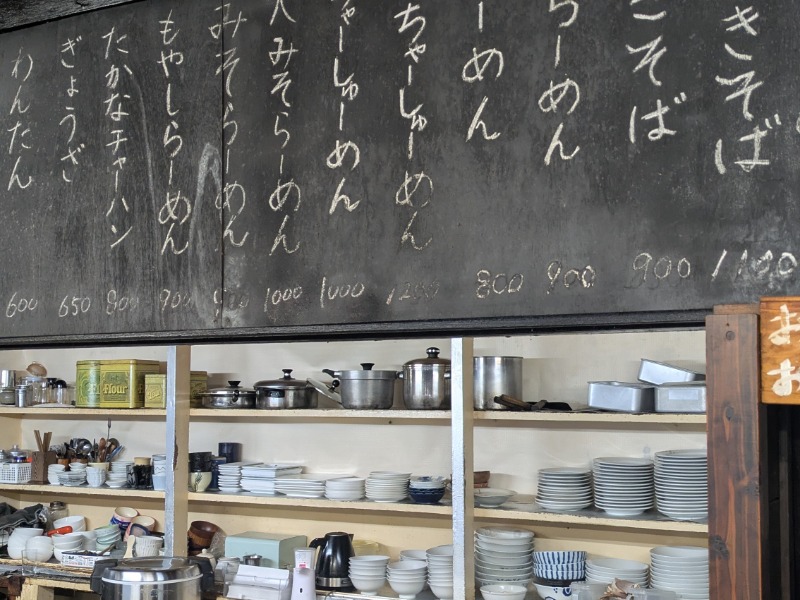 きそば 1100
そば 900
らーめん 900
ーめん 800
ちゃーしゅーめん 1200
ゃーしゅーめん 1000
みそらーめん 1000
みそらーめん
もやしらーめん 900
たかなチャーハン 800
ぎょうざ 650
わんたん 600
お
お
Flour